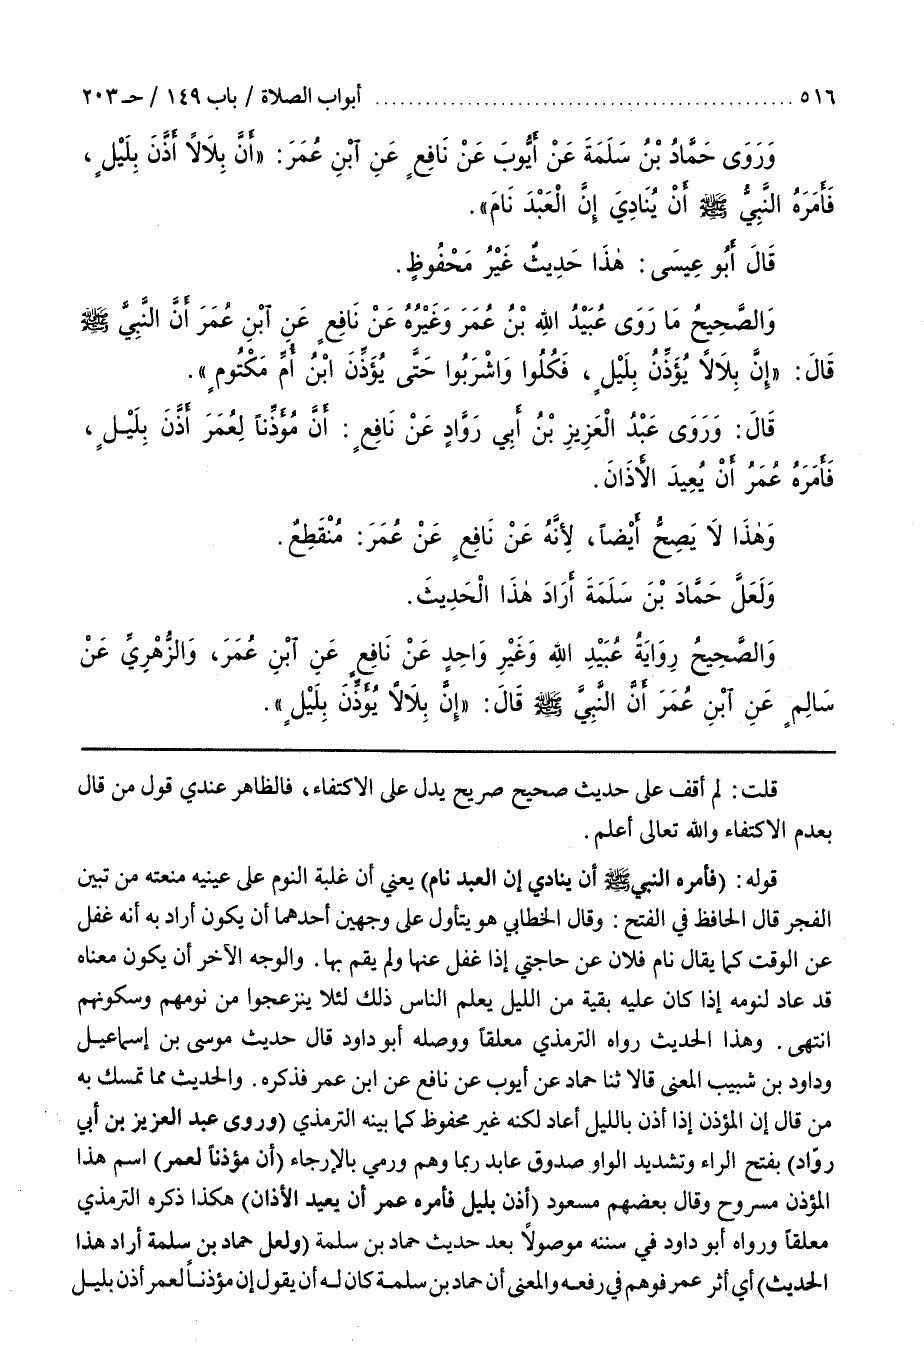 ٥١٦ ........................................................ أبواب الصلاة / باب ١٤٩ / حـ ٢٠٣
وَرَوَى حَمَّادُ بْنُ سَلَمَةَ عَنْ أَيُّوبَ عَنْ نَافِعٍ عَنِ ٱبْنِ عُمَرَ: «أَنَّ بِلَالاً أَذَّنَ بِلَيْلٍ،
فَأَمَرَهُ النَّبِيُّ ﷺ أَنْ يُنَادِيَ إِنَّ الْعَبْدَ نَامَ».
قَالَ أَبُو عِيسَى: هٰذَا حَدِيثٌ غَيْرُ مَحْفُوظٍ.
وَالصَّحِيحُ مَا رَوَى عُبَيْدُ اللهِ بْنُ عُمَرَ وَغَيْرُهُ عَنْ نَافِعٍ عَنِ ٱبْنِ عُمَرَ أَنَّ النَّبِيَّ ﷺ
قَالَ: «إِنَّ بِلَالاً يُؤَذِّنُ بِلَيْلٍ، فَكُلُوا وَاشْرَبُوا حَتَّى يُؤَذِّنَ ابْنُ أُمِّ مَكْتُومٍ».
قَالَ: وَرَوَى عَبْدُ الْعَزِيزِ بْنُ أَبِي رَوَّادٍ عَنْ نَافِعٍ: أَنَّ مُؤَذِّناً لِعُمَرَ أَذَّنَ بِلَيْـلٍ،
فَأَمَرَهُ عُمَرُ أَنْ يُعِيدَ الْأَذَانَ.
وَهٰذَا لَا يَصِحُّ أَيْضاً، لِأَنَّهُ عَنْ نَافِعٍ عَنْ عُمَرَ: مُنْقَطِعٌ.
وَلَعَلَّ حَمَّادَ بْنَ سَلَمَةَ أَرَادَ هٰذَا الْحَدِيثَ.
وَالصَّحِيحُ رِوَايَةُ عُبَيْدِ اللهِ وَغَيْرِ وَاحِدٍ عَنْ نَافِعٍ عَنِ ٱبْنِ عُمَرَ، وَالزُّهْرِيِّ عَنْ
سَالِمٍ عَنِ ٱبْنِ عُمَرَ أَنَّ النَّبِيَّ ﷺ قَالَ: «إِنَّ بِلَالاً يُؤَذِّنُ بِلَيْلٍ».
قلت: لم أقف على حديث صحيح صريح يدل على الاكتفاء، فالظاهر عندي قول من قال
بعدم الاكتفاء والله تعالى أعلم.
قوله: (فأمره النبي ﷺ أن ينادي إن العبد نام) يعني أن غلبة النوم على عينيه منعته من تبين
الفجر قال الحافظ في الفتح: وقال الخطابي هو يتأول على وجهين أحدهما أن يكون أراد به أنه غفل
عن الوقت كما يقال نام فلان عن حاجتي إذا غفل عنها ولم يقم بها. والوجه الآخر أن يكون معناه
قد عاد لنومه إذا كان عليه بقية من الليل يعلم الناس ذلك لئلا ينزعجوا من نومهم وسكونهم
انتهى. وهذا الحديث رواه الترمذي معلقاً ووصله أبو داود قال حديث موسى بن إسماعيـل
وداود بن شبيب المعنى قالا ثنا حماد عن أيوب عن نافع عن ابن عمر فذكره. والحديث مما تمسك به
من قال إن المؤذن إذا أذن بالليل أعاد لكنه غير محفوظ كما بينه الترمذي (وروى عبد العزيز بن أبي
روّاد) بفتح الراء وتشديد الواو صدوق عابد ربما وهم ورمي بالإرجاء (أن مؤذناً لعمر) اسم هذا
المؤذن مسروح وقال بعضهم مسعود (أذن بليل فأمره عمر أن يعيد الأذان) هكذا ذكره الترمذي
معلقاً ورواه أبو داود في سننه موصولاً بعد حديث حماد بن سلمة (ولعل حماد بن سلمة أراد هذا
الحديث) أي أثر عمر فوهم في رفعه والمعنى أن حماد بن سلمـة كان لـه أن يقول إن مؤذنـاً لعمر أذن بليـل